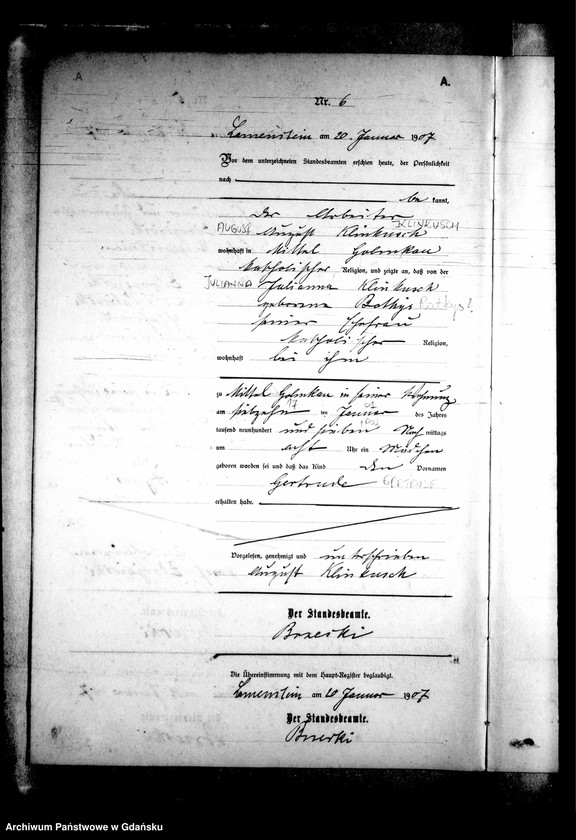 A.
Nr. 6
Lamenstein am 20. Januar 1907
Vor dem unterzeichneten Standesbeamten erschien heute, der Persönlichkeit
nach
be kannt,
der Arbeiter
AUGUST August Klinkusch KLINKUSCH
wohnhaft in Mittel Golmkau
katholischer Religion, und zeigte an, daß von der
JULIANNA Julianna Klinkusch
geborene Bothys
seiner Ehefrau
katholischer Religion,
wohnhaft bei ihm
zu Mittel Golmkau in seiner Wohnung
am siebzehn 17 ten Januar 01 des Jahres
tausend neunhundert und sieben 1907 Nach mittags
um acht Uhr ein Mädchen
geboren worden sei und daß das Kind den Vornamen
Gertrude GERTRUDE
erhalten habe.
Vorgelesen, genehmigt und unterschrieben
August Klinkusch
Der Standesbeamte.
Brzeski
Die Übereinstimmung mit dem Haupt-Register beglaubigt.
Lamenstein am 20 Januar 1907
Der Standesbeamte.
Brzeski
Archiwum Państwowe w Gdańsku